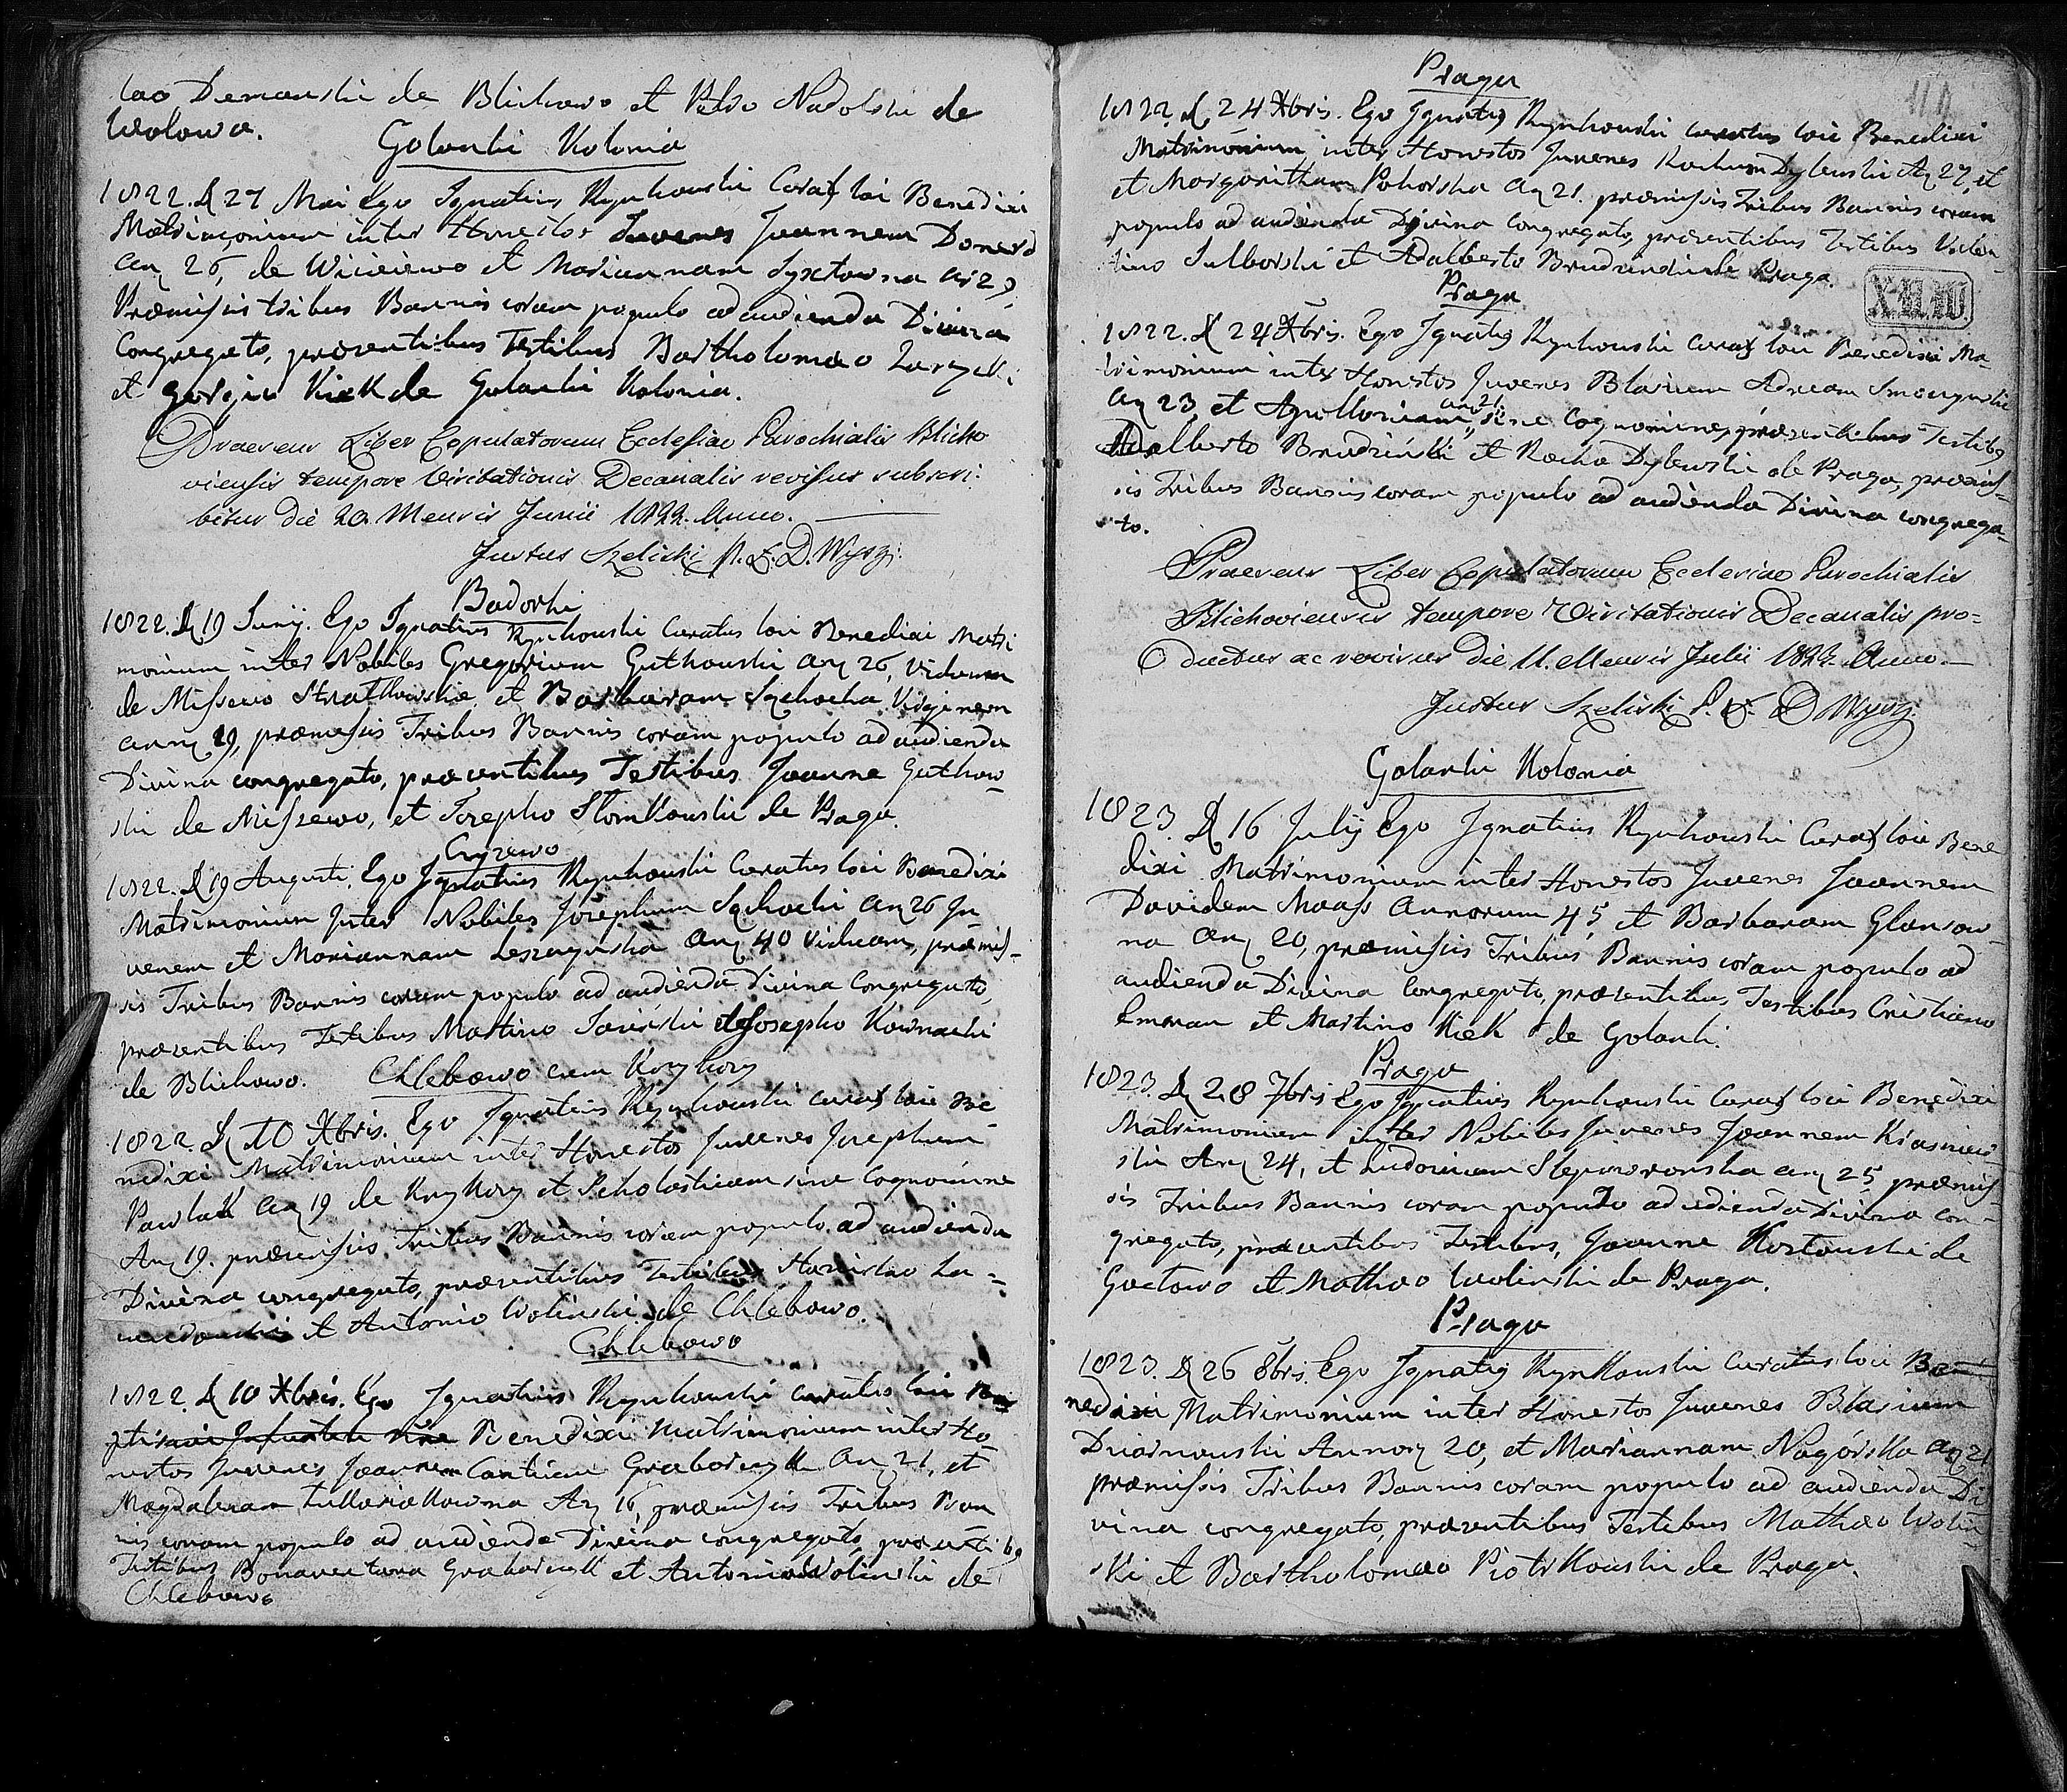 lao Demanski de Blichowo et Petro Nadolski de
Wolowa.
Golanki Kolonia
1822. D 27 Mai Ego Ignatius Rynkowski Curat loci Benedixi
Matrimonium inter Honestos Juvenes Joannem Donerd
An 26, de Wiciejewo et Mariannam Syxtowna An 29
Præmissis tribus Bannis coram populo ad audienda Divina
Congregato, præsentibus Testibus Bartholomæo
et Kiek de Golanki Kolonia.
Praesens Liber Copulatorum Ecclesiae Parochialis Blicho
viensis tempore Visitationis Decanalis revisus subscri-
bitur die 20 Mensis Junii 1822. Anno.
Justus Szelicki D. Wysz.
Bodorki
1822. D 19 Junij. Ego Ignatius Rynkowski Curatus loci Benedixi Matri
monium inter Nobiles Gregorium Gutkowski An 26, Viduum
de Missewo et Barbaram Sochocka Virginem
ann 19, præmissis Tribus Bannis coram populo ad audienda
Divina congregato, præsentibus Testibus Joanne Gutkow-
ski de Misszewo, et Josepho Slomkowski de Praga.
Cyzewo
1822. D 19 Augusti. Ego Ignatius Rynkowski Curatus loci Benedixi
Matrimonium Inter Nobiles Josephum Sochocki An 26 Ju-
venem et Mariannam Leszczynska An 40 Viduam, præmis-
sis Tribus Bannis coram populo ad audienda Divina Congregato,
præsentibus Testibus Martino et Josepho Kownacki
de Blichowo.
Chlebowo cum Krzykosy
1822. D 10 Xbris. Ego Ignatius Rynkowski curat loci Be-
nedixi Matrimonium inter Honestos Juvenes Josephum
Pawlak An 19 de Krzykosy et Scholasticam sine Cognomine
An 19. præmissis Tribus Bannis coram populo ad audienda
Divina congregato, præsentibus Testibus Stanislao La-
et Antonio Wolinski de Chlebowo.
Chlebowo
1822. D 10 Xbris. Ego Ignatius Rynkowski curatus loci
Benedixi Matrimonium inter Ho-
nestos Juvenes Joannem Cantium Graborczyk An 21, et
Magdalenam An 16, præmissis Tribus Ban
nis coram populo ad audienda Divina congregato, præsentibq
Testibus Bonaventura Graborczyk et Antonio Wolinski de
Chlebowo
Praga
1822. D 24 Xbris. Ego Ignatiq Rynkowski curatus loci Benedixi
Matrimonium inter Honestos Juvenes Rochum Dylewski An 27, et
et Margaritham Pohorska An 21. præmissis Tribus Bannis coram
populo ad audienda Divina Congregato, præsentibus Testibus Valen-
tino Sulborski et Adalberto Brudzinski de Praga.
Praga
1822. D 24 Xbris. Ego Ignatiq Rynkowski Curat loci Benedixi Ma-
trimonium inter Honestos Juvenes Blasium Adream
An 23, et Apolloniam an 21 sine Cognomine, præsentibus Testibq
Adalberto Brudziński et Rocho Dylewski de Praga, præmis-
sis Tribus Bannis coram populo ad audienda Divina congrega-
to.
Praesens Liber Copulatorum Ecclesiae Parochialis
Blichoviensis tempore Visitationis Decanalis pro-
ductus ac revisus die 11. Mensis Julii 1823. Anno.
Justus Szelicki D Wysz.
Golanki Kolonia
1823. D 16 Julij Ego Ignatius Rynkowski Curat loci Bene
dixi Matrimonium inter Honestos Juvenes Joannem
Davidem Maass Annorum 45 et Barbaram Glonsow-
na An 20, præmissis Tribus Bannis coram populo ad
audienda Divina Congregato, præsentibus Testibus Cristiano
et Martino Kiek de Golanki.
Praga
1823. D 28 7bris Ego Ignatius Rynkowski Curat loci Benedixi
Matrimonium inter Nobiles Juvenes Joannem Krasniew-
ski An 24, et Ludovicam Slepowronska An 25 præmis-
sis Tribus Bannis coram populo ad udienda Divina con-
gregato, præsentibus Testibus, Joanne Kostowski de
et Matheo Wolinski de Praga.
Praga
1823. D 26 8bris. Ego Ignatiq Rynkowski Curatus loci Be
nedixi Matrimonium inter Honestos Juvenes Blasium
Annor 20, et Mariannam Nagórska An 21
præmissis Tribus Bannis coram populo ad audienda Di
vina congregato, præsentibus Testibus Mathæo Wolin-
ski et Bartholomæo Piotrkowski de Praga.